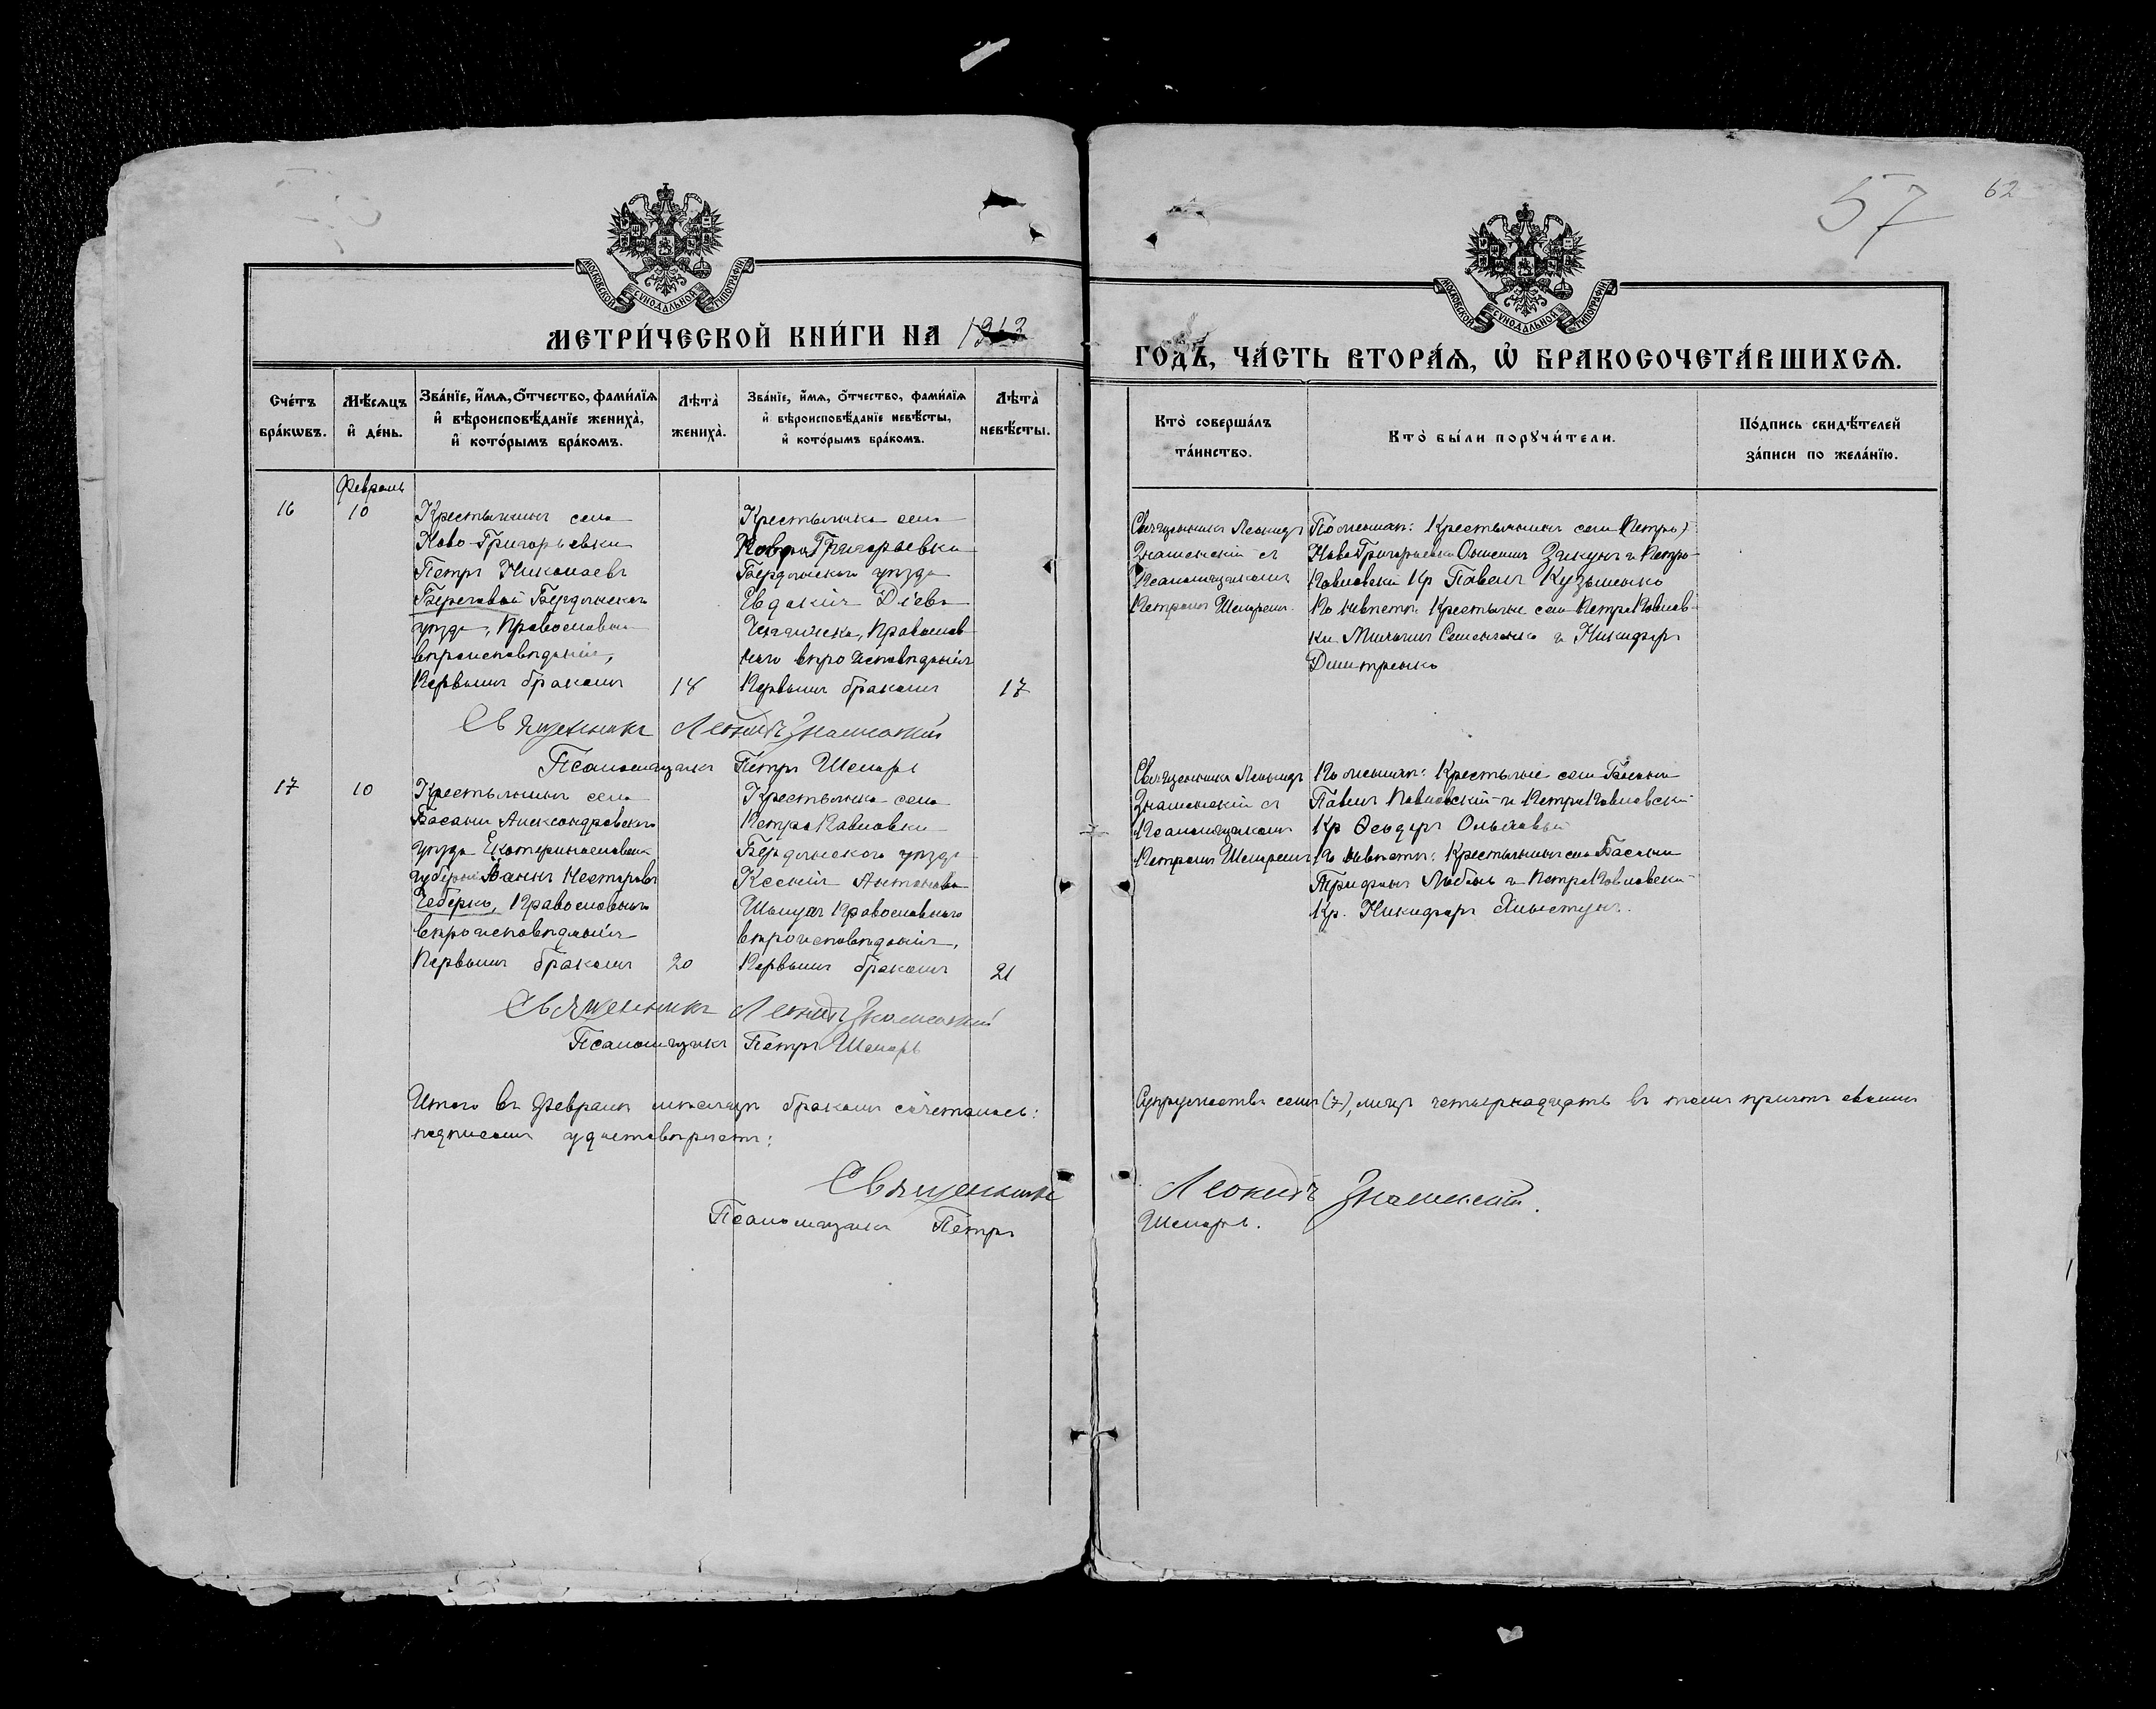 57
62
МОСКОВСКОЙ СУНОДАЛЬНОЙ ТИПОГРАФІИ
МОСКОВСКОЙ СУНОДАЛЬНОЙ ТИПОГРАФІИ
МЕТРИ́ЧЕСКОЙ КНИ́ГИ НА 1912
ГОДЪ, ЧА́СТЬ ВТОРА́Ѧ, Ѡ БРАКОСОЧЕТА́ВШИХСѦ.
Сче́тъ бра́кѡвъ.
Мѣ́сѧцъ и де́нь.
Зва́нїе, и́мѧ, о́тчество, фами́лїѧ и вѣроисповѣ́данїе жениха̀, и кото́рымъ бра́комъ.
Лѣта̀ жениха̀.
Зва́нїе, и́мѧ, о́тчество, фами́лїѧ и вѣроисповѣ́данїе невѣ́сты, и кото́рымъ бра́комъ.
Лѣта̀ невѣ́сты.
Кто̀ соверша́лъ та́инство.
Кто̀ бы́ли порꙋчи́тели.
По́дпись свидѣ́телей за́писи по жела́нїю.
Февраль
16
10
Крестьянинъ села
Ново-Григорьевки
Петръ Николаевъ
Береговой Бердянскаго
уѣзда, Православнаго
вѣроисповѣданія,
Первымъ бракомъ
18
Крестьянка села
Григорьевки
Бердянскаго уѣзда
Евдокія Діева
Православ
наго вѣроисповѣданія
Первымъ бракомъ
17
Священникъ Леонидъ
Знаменскій съ
Псаломщикомъ
Петромъ Шепаремъ.
По женихѣ: Крестьянинъ села (Петро)
Ново Григорьевки Закунъ и Петро-
Павловки Кр Павелъ Кузьменко
По невѣстѣ: Крестьяне села Петропавлов
ки Семененко и Никифоръ
Дмитренко
Священникъ Леонидъ Знаменскій
Псаломщикъ Петръ Шепарь
17
10
Крестьянинъ села
Басани Александровскаго
уѣзда Екатеринославск
губерніи Несторовъ
Чеберко, Православнаго
вѣроисповѣданія
Первымъ бракомъ
20
Крестьянка села
Петропавловки
Бердянскаго уѣзда
Ксенія Антонова
Православнаго
вѣроисповѣданія,
Первымъ бракомъ
21
Священникъ Леонидъ
Знаменскій съ
Псаломщикомъ
Петромъ Шепаремъ
По женихѣ: Крестьяне села Басани
Павелъ Павловскій и Петропавловки
Кр Ѳеодоръ Ольховый
По невѣстѣ: Крестьянинъ села Басани
Трифонъ и Петропавловки
Кр. Никифоръ Хлыстунъ.
Священникъ Леонидъ Знаменскій
Псаломщикъ Петръ Шепарь
Итого въ Февралѣ мѣсяцѣ бракомъ сочеталось:
Супружествъ семь (7), лицъ четырнадцать въ томъ причтъ своимъ
подписомъ удостовѣряетъ:
Священникъ Леонидъ Знаменскій.
Псаломщикъ Петръ Шепарь.